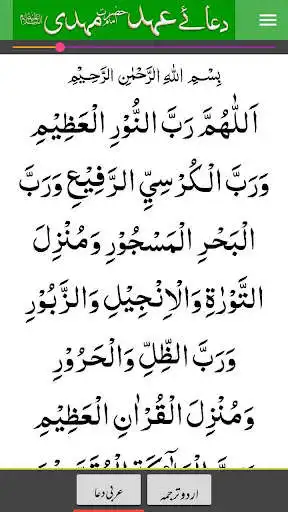 دعائے عہد حضرت امام مہدی
بِسْمِ اللهِ الرَّحْمٰنِ الرَّحِيْمِ
اَللّٰهُمَّ رَبَّ النُّوْرِ الْعَظِيْمِ
وَرَبَّ الْكُرْسِيِّ الرَّفِيْعِ وَرَبَّ
الْبَحْرِ الْمَسْجُوْرِ وَمُنْزِلَ
التَّوْرٰةِ وَالْاِنْجِيْلِ وَالزَّبُوْرِ
وَرَبَّ الظِّلِّ وَالْحَرُوْرِ
وَمُنْزِلَ الْقُرْاٰنِ الْعَظِيْمِ
عربی دعا
اردو ترجمہ